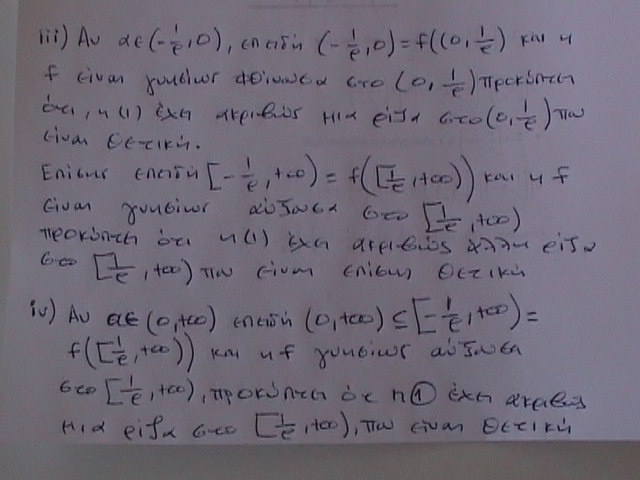 iii) Αν α∈(-1/e,0), επειδή (-1/e,0)=f((0,1/e) και η
f είναι γνησίως φθίνουσα στο (0,1/e) προκύπτει
ότι, η (1) έχει ακριβώς μια ρίζα στο (0,1/e) που
είναι θετική.
Επίσης επειδή [-1/e,+∞) = f([1/e,+∞)) και η f
είναι γνησίως αύξουσα στο [1/e,+∞)
προκύπτει ότι η (1) έχει ακριβώς άλλη ρίζα
στο [1/e,+∞) που είναι επίσης θετική
iv) Αν α∈(0,+∞) επειδή (0,+∞)⊆[-1/e,+∞)=
f([1/e,+∞)) και η f γνησίως αύξουσα
στο [1/e,+∞), προκύπτει ότι η ① έχει ακριβώς
μια ρίζα στο [1/e,+∞), που είναι θετική